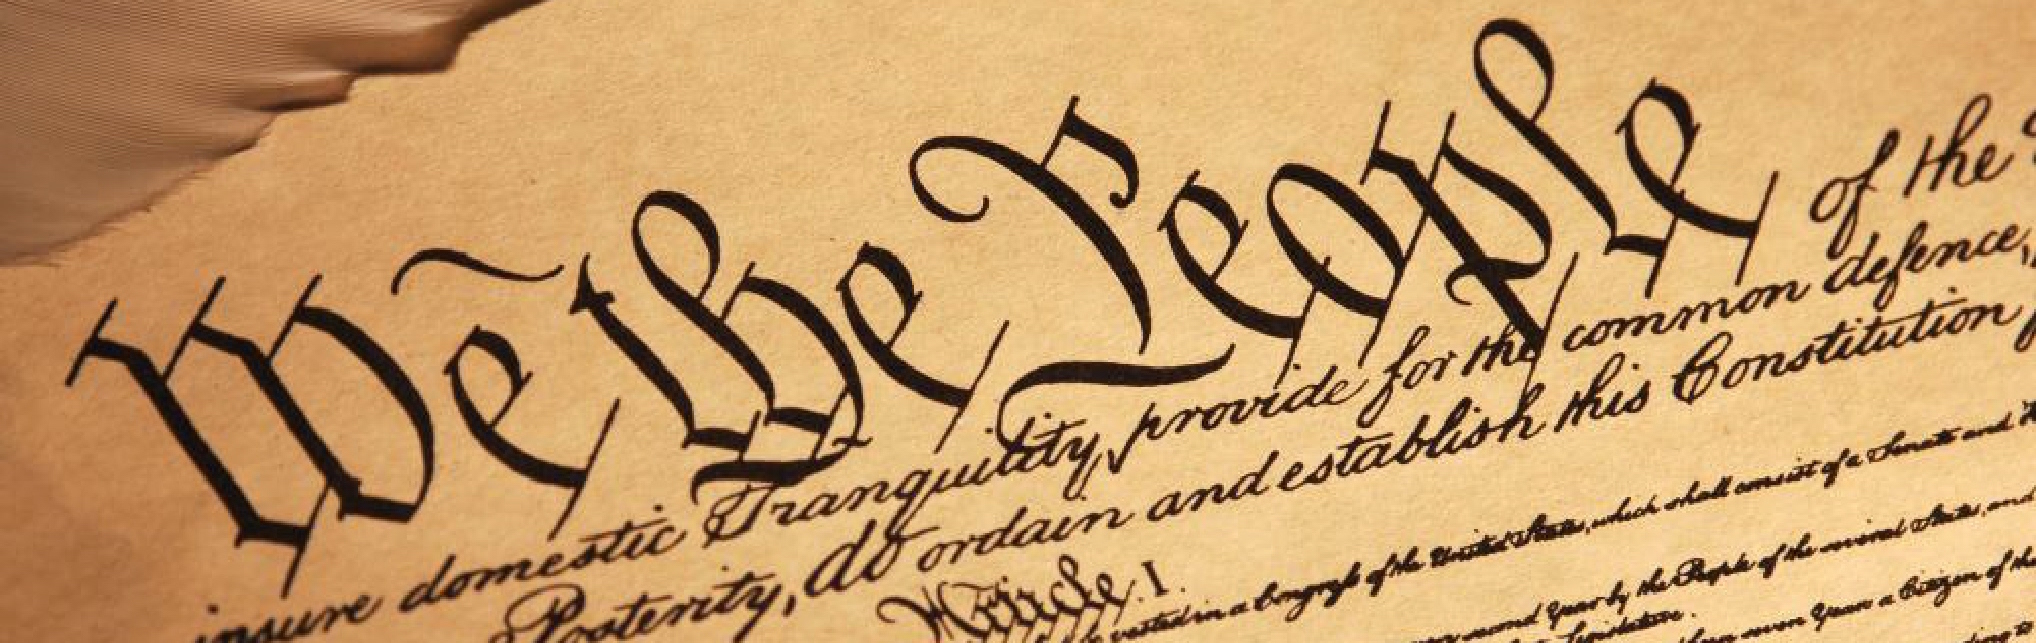 We the People of the
insure domestic Tranquility, provide for the common defence,
Posterity, do ordain and establish this Constitution
Article. I.
vested in a Congress of the United States, which shall consist of a Senate and
second Year by the People of the several States, and
Legislature.
been seven Years a Citizen of the